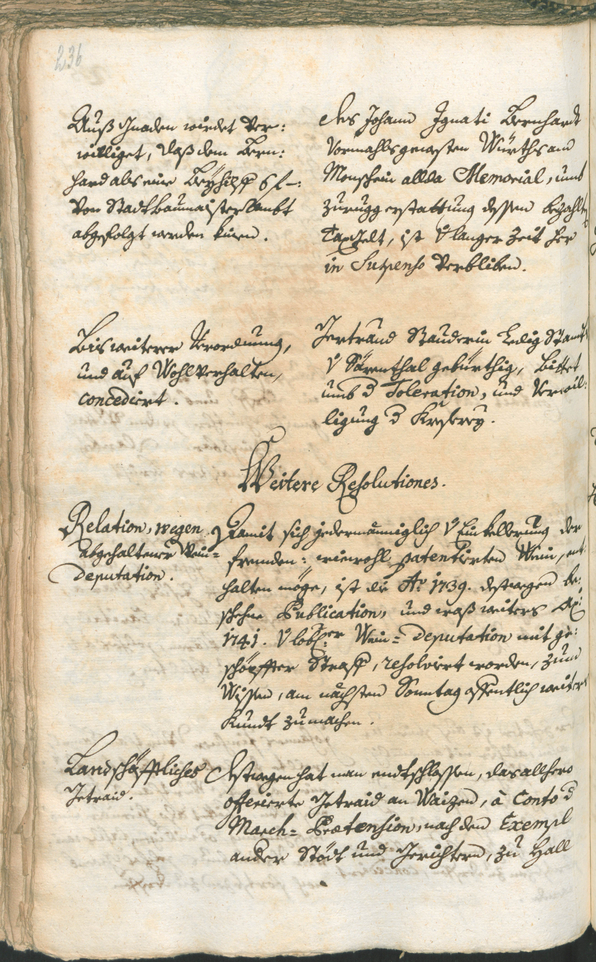 236
Auß Gnaden würdet ver:
williget, daß dem Bern:
hard als eine Beyhilff 6 f –:
von Stadtbaumaister Ambt
abgefolgt werden künen.
des Johann Ignati Bernhardt
vormahls gewesten Würths am
Monschein allda Memorial, umb
zurugg erstattung dessen bezahlten
Taxgelt, ist v langer Zeit her
in Suspenso verbliben.
Bis weiterer Verordnung,
und auf Wohlverhalten,
concediert.
Gertraud Stauderin Ledig Stants
v Särenthal gebürthig, bittet
umb d Toleration, und verwil:
ligung d
Weitere Resolutiones.
Relation, wegen
abgehaltener Wein=
Deputation.
Damit sich jedermänniglich v Einkellerung der
fremden: wiewohl patentirten Wein, ent
halten möge, ist die Ao. 1739. destwegen be:
schehne Publication, und waß weiters Ao.
1741. v lobser Wein= Deputation mit ge:
schöpffter Straff, resolvirt worden, zum
Wissen, am nächsten Sonntag offentlich weiter
Kundt zumachen.
Landschäfftliches
Getraid.
Destwegen hat man endtschlossen, das allhero
offerierte Getraid an Waizen, à Conto d
March= Prætension, nach dem Exempl
ander Stött und Gerichtern, zu Hall